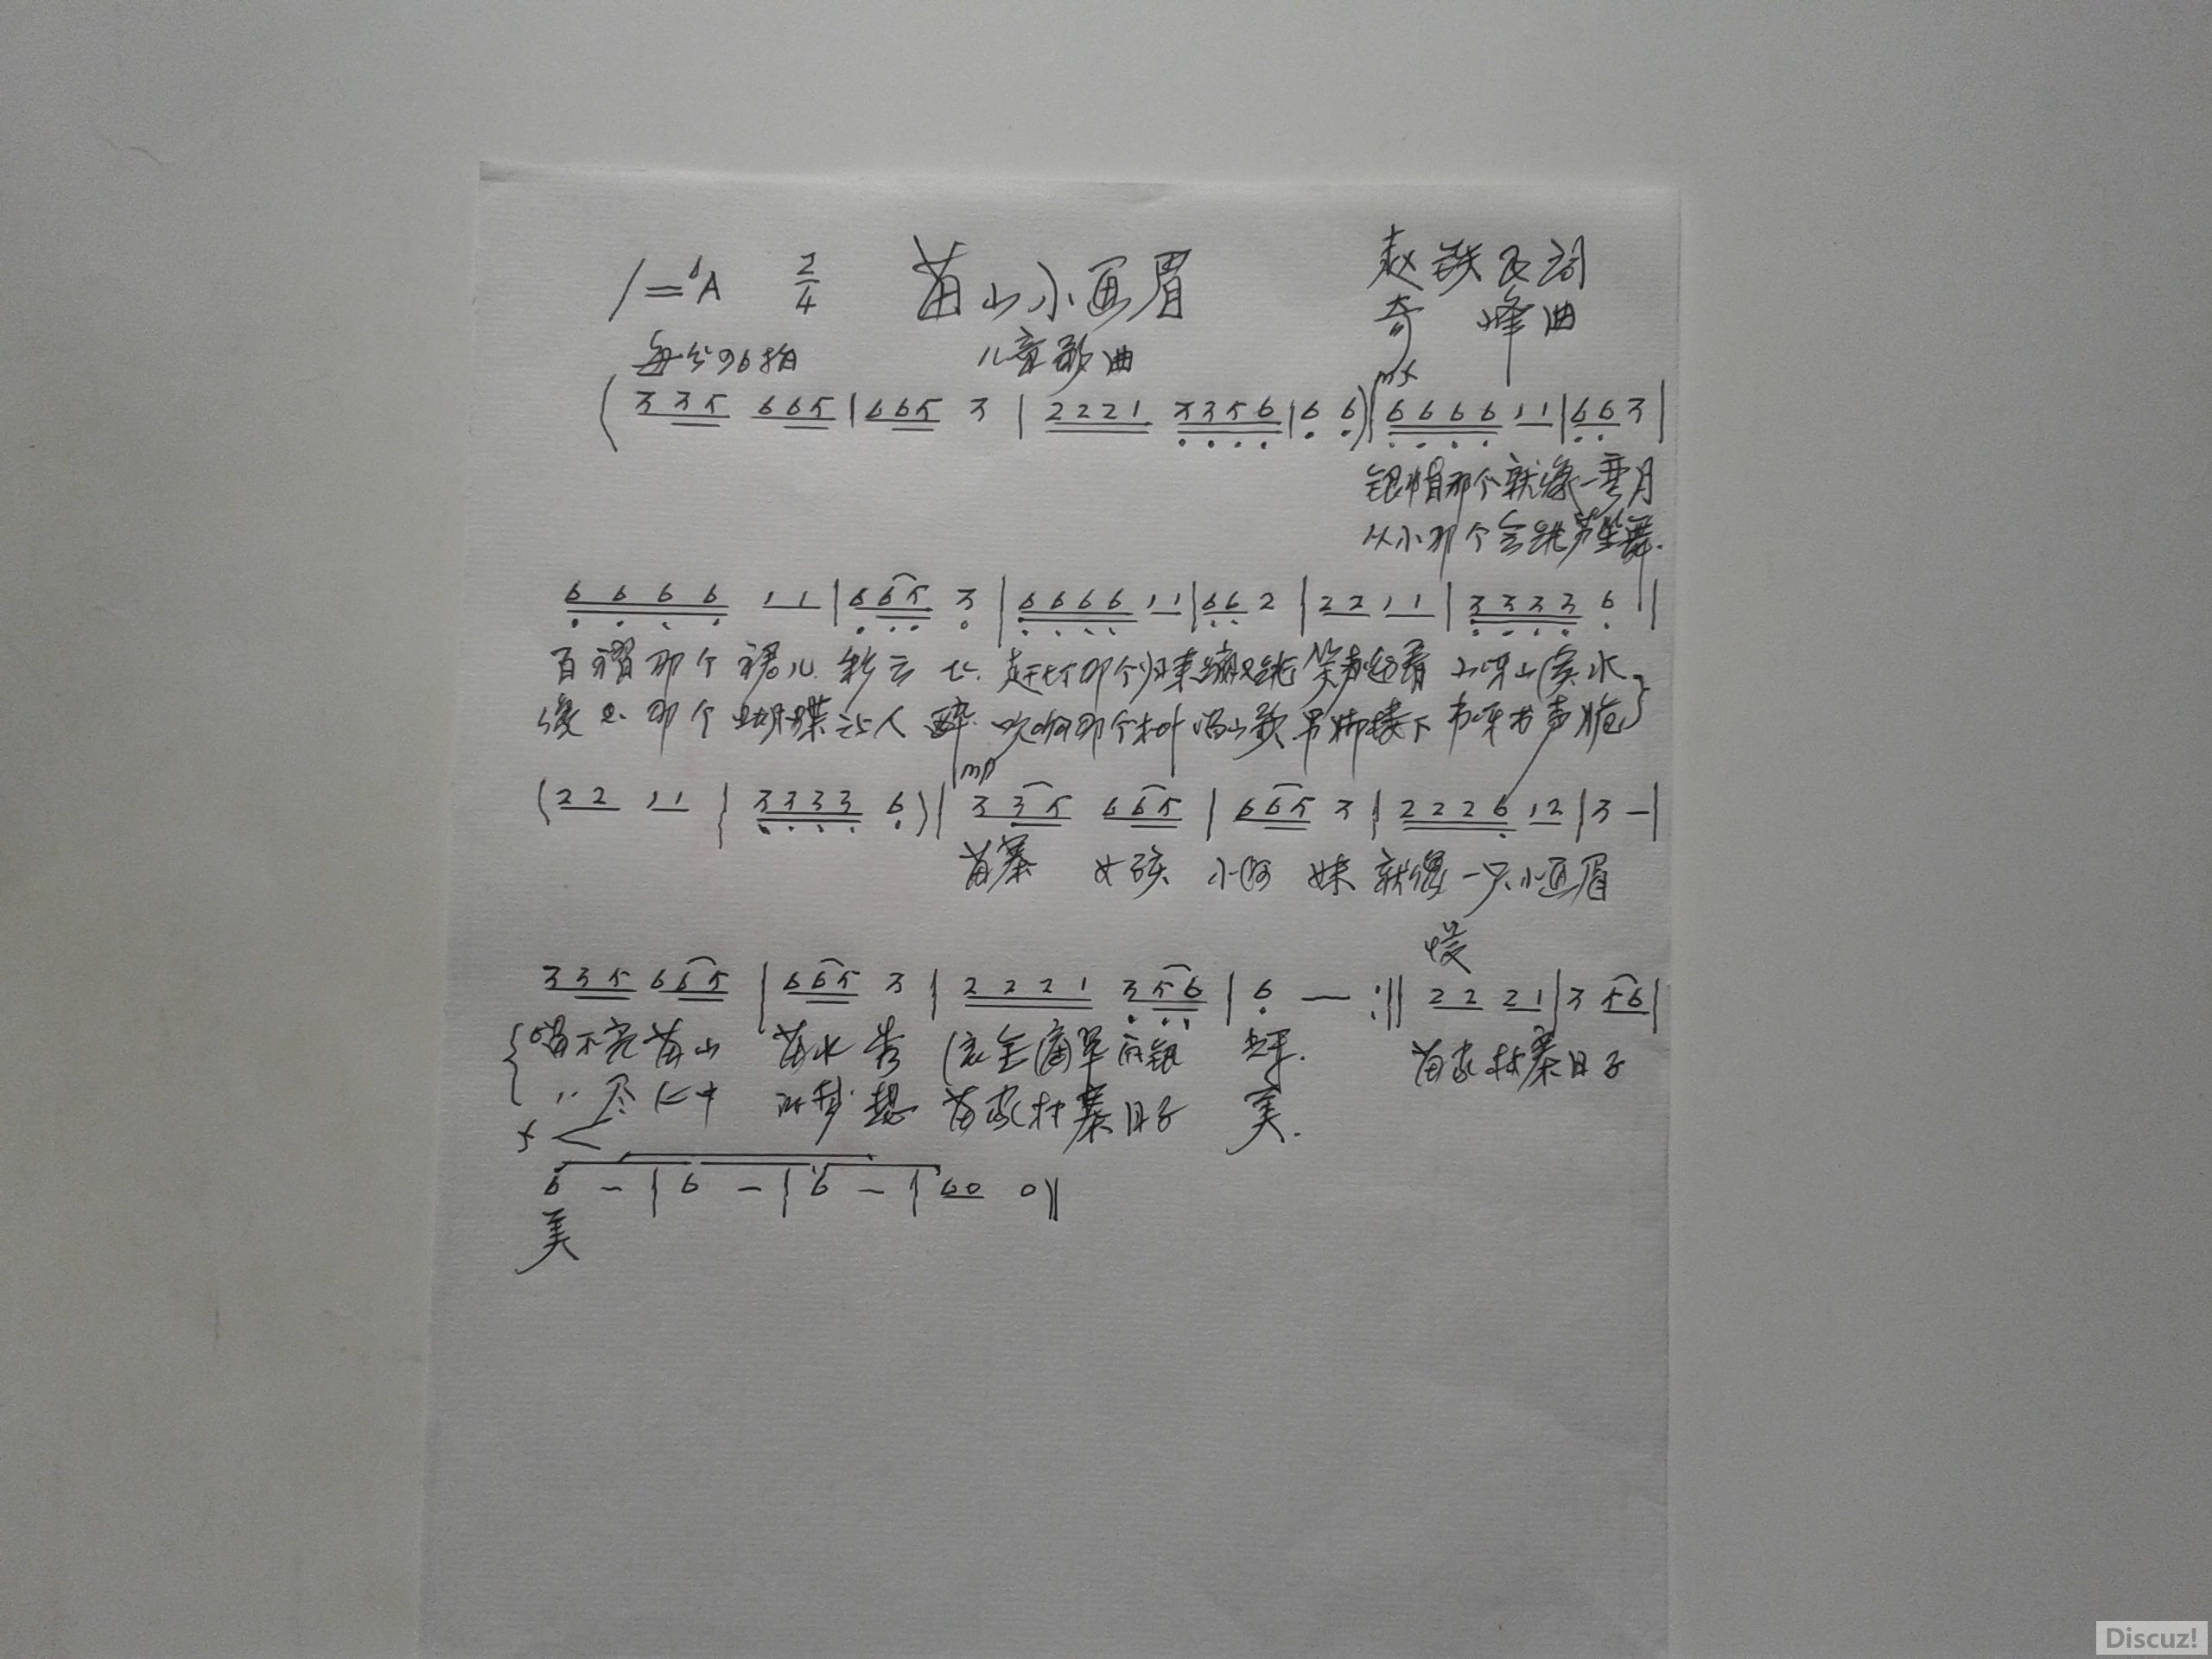 1=♭A 2/4 苗山小画眉 赵铁民词
奇峰曲
每分96拍 儿童歌曲
mf
( 3 3 5 6 6 5 | 6 6 5 3 | 2 2 2 1 3 3 5 6 | 6 6 ) | 6 6 6 6 1 1 | 6 6 3 |
银帽那个就像一弯月
从小那个会跳芦笙舞.
6 6 6 6 1 1 | 6 6 5 3 | 6 6 6 6 1 1 | 6 6 2 | 2 2 1 1 | 3 3 3 3 6 |
百褶那个裙儿彩云 飞. 那个归来蹦又跳 笑声 山呀山 水
像只那个蝴蝶让人醉. 那个木叶唱山歌 吊脚楼下书呀书声脆
mp
( 2 2 1 1 | 3 3 3 3 6 ) | 3 3 5 6 6 5 | 6 6 5 3 | 2 2 2 6 1 2 | 3 - |
苗寨 女孩 小阿 妹 就像一只小画眉
慢
3 3 5 6 6 5 | 6 6 5 3 | 2 2 2 1 3 5 6 | 6 — :‖ 2 2 2 1 | 3 5 6 |
唱不完苗山 苗水秀 苗家村寨日子
〃 尽心中 的梦想 苗家村寨日子 美.
f <
6 - | 6 - | 6 - | 6 0 0 ‖
美
Discuz!